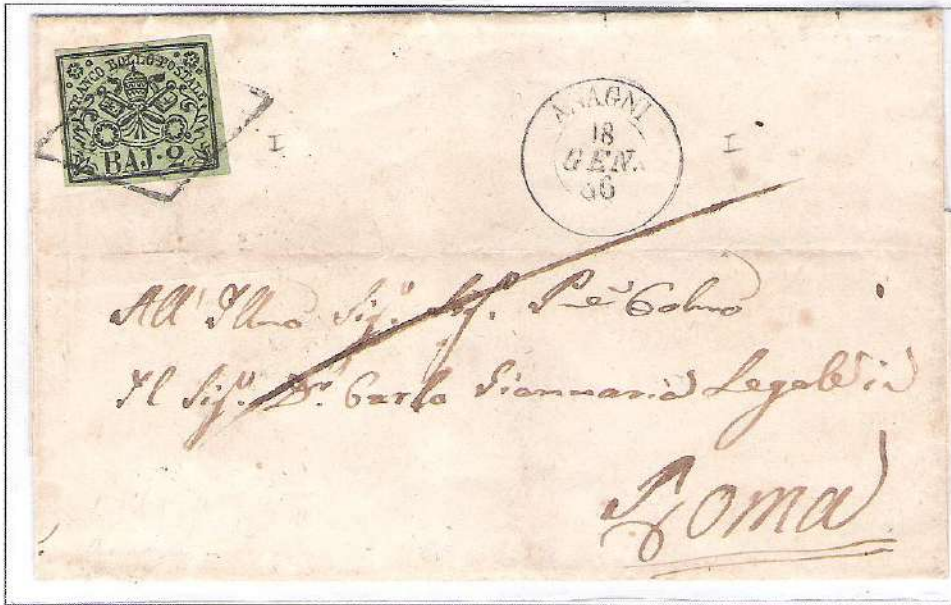 FRANCO BOLLO POSTALE
BAJ·2
ANAGNI
18
GEN.
66
I
I
All' Illmo Sig.r Sig. P. Colmo
Il Sig.r D.r Carlo Giannaria Legale in
Roma